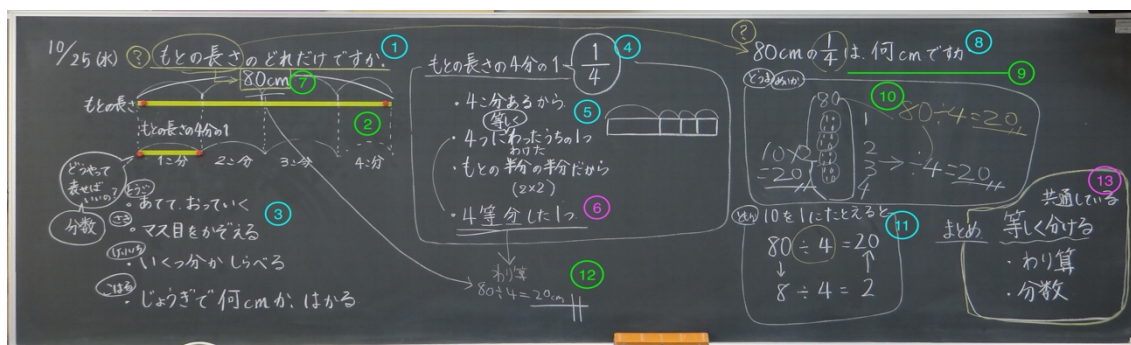 10/25(水) ? もとの長さのどれだけですか。 1
80cm 7
もとの長さ
2
もとの長さの4分の1
1こ分 2こ分 3こ分 4こ分
どうやって
表せば
いいの?
分数
・あてて、おっていく
3
・マス目をかぞえる
・いくつ分かしらべる
こはる
・じょうぎで何cmか、はかる
もとの長さの4分の1 1/4 4
・4こ分あるから
5
等しく
・4つにわったうちの1つ
わけた
・もとの半分の半分だから
(2×2)
・4等分した1つ 6
わり算
80÷4=20cm
12
?
80cmの1/4は、何cmですか 8
9
80
10
80÷4=20
10×2
=20
1
2
3
4
÷4=20
10を1にたとえると
11
80÷4=20
8÷4=2
13
共通している
まとめ 等しく分ける
・わり算
・分数